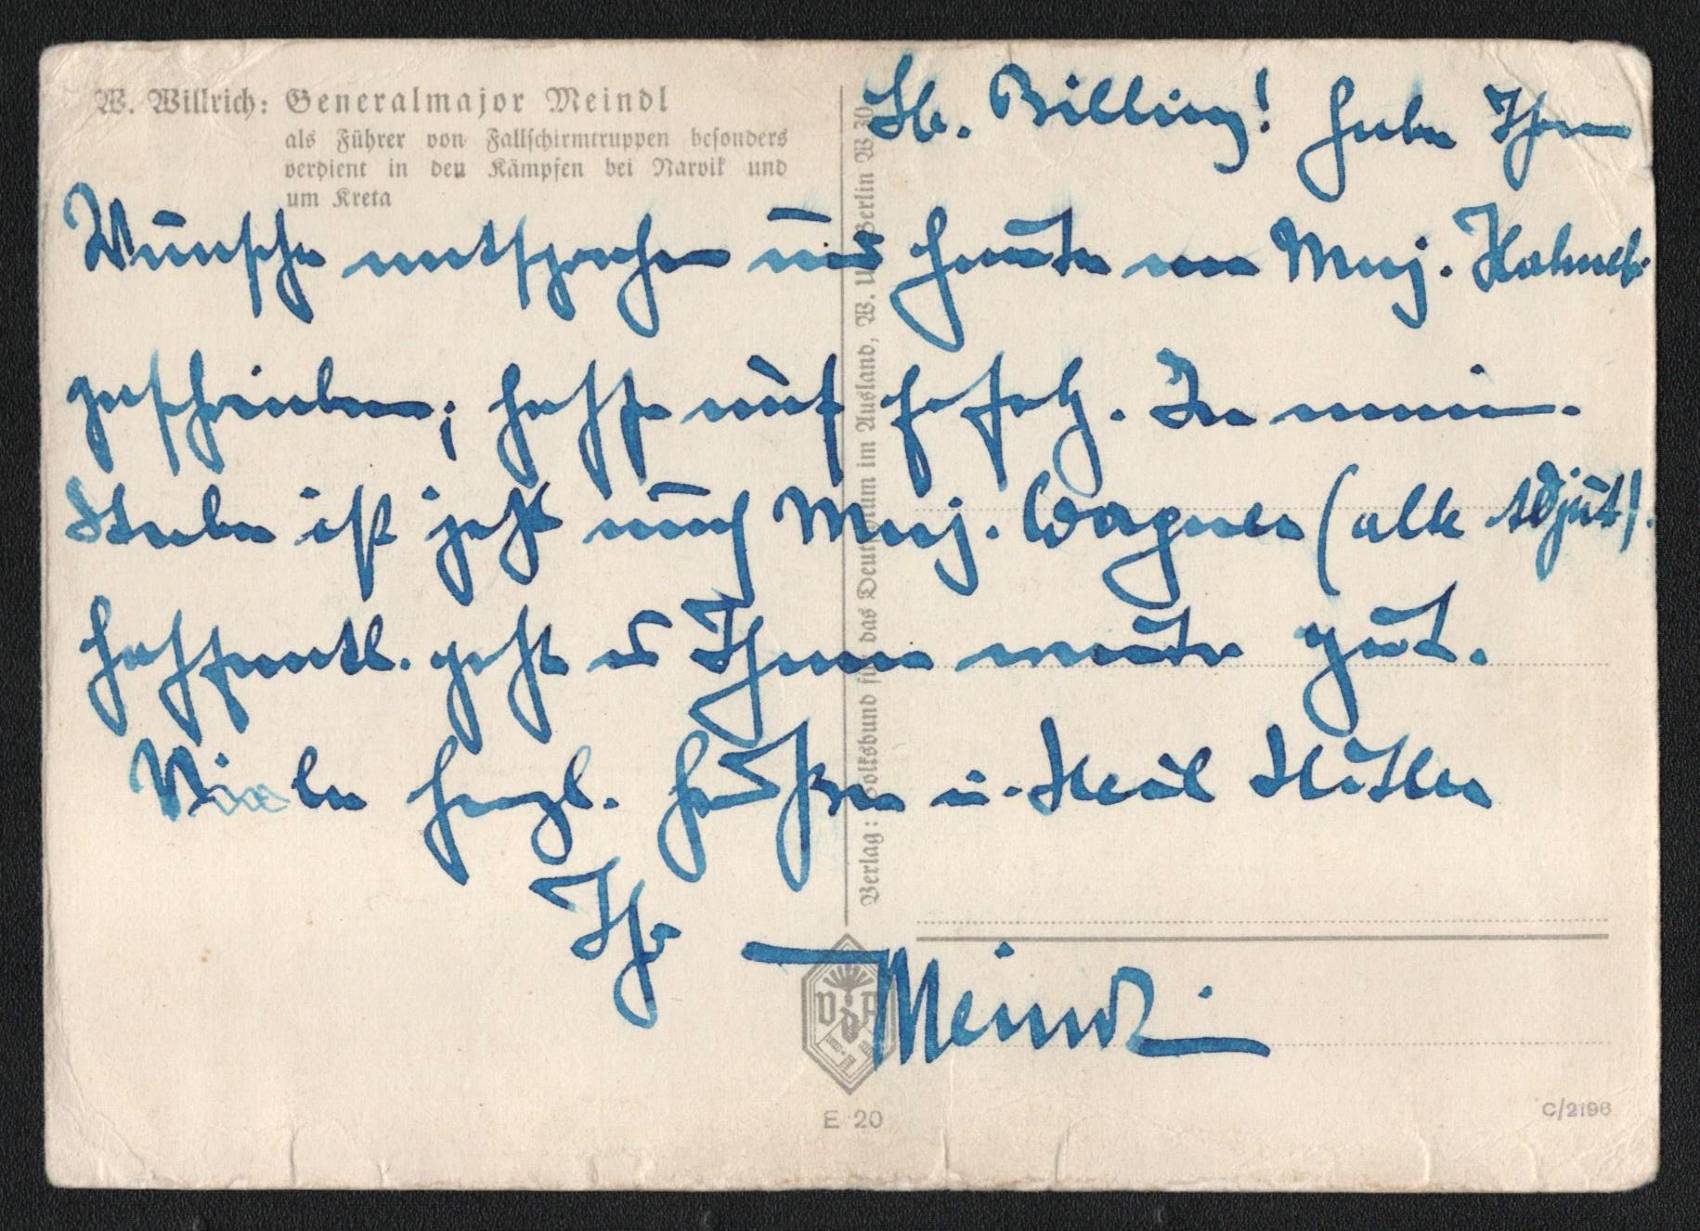 W. Willrich: Generalmajor Meindl
als Führer von Fallschirmtruppen besonders
verdient in den Kämpfen bei Narvik und
um Kreta
Lb. Billing! habe Ihrem
Wunsche entsprochen und heute an Maj.
geschrieben; hoffe auf Erfolg. In meinem
Stabe ist jetzt auch Maj. Wagner (alte Adjut).
hoffentl. geht es Ihnen weiter gut.
Viele herzl. Grüße u. Heil Hitler
Ihr
Meindl
Verlag: Volksbund für das Deutschtum im Ausland, W. U., Berlin W 30
VdA
E 20
C/2196